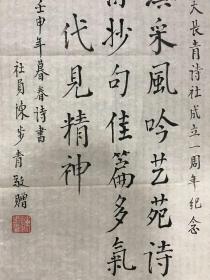 天長青诗社成立一周年纪念
采風吟艺苑诗
抄句佳篇多氣
代見精神
壬申年暮春诗書
社員陳步青敬赠